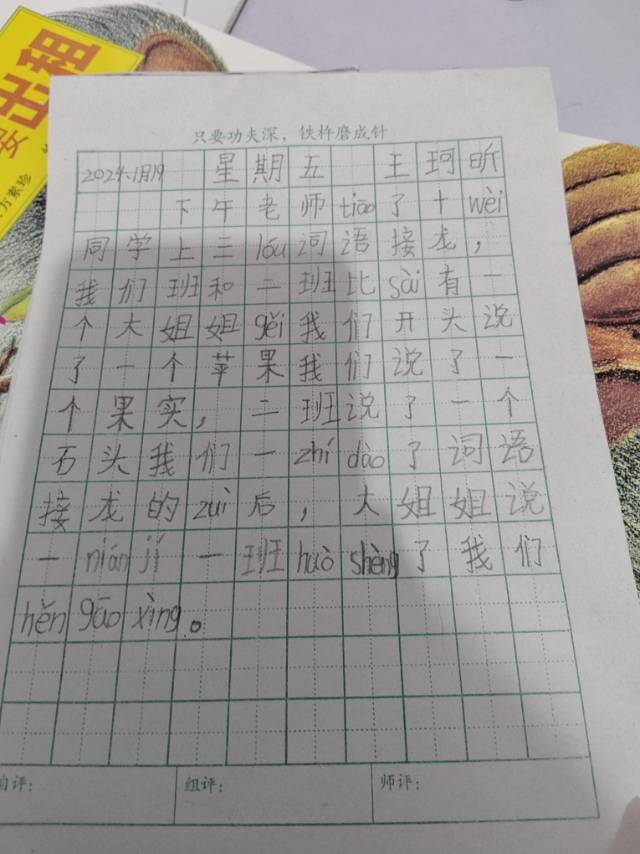 出租
只要功夫深，铁杵磨成针
2024.1月19 星期五 王珂昕
下午老师tiāo了十wèi
同学上三lóu词语接龙，
我们班和二班比sài有一
个大姐姐gěi我们开头说
了一个苹果我们说了一
个果实，二班说了一个
石头我们一zhí dào了词语
接龙的zuì后，大姐姐说
一nián jí一班huò shèng了我们
hěn gāo xìng。
自评：
组评：
师评：